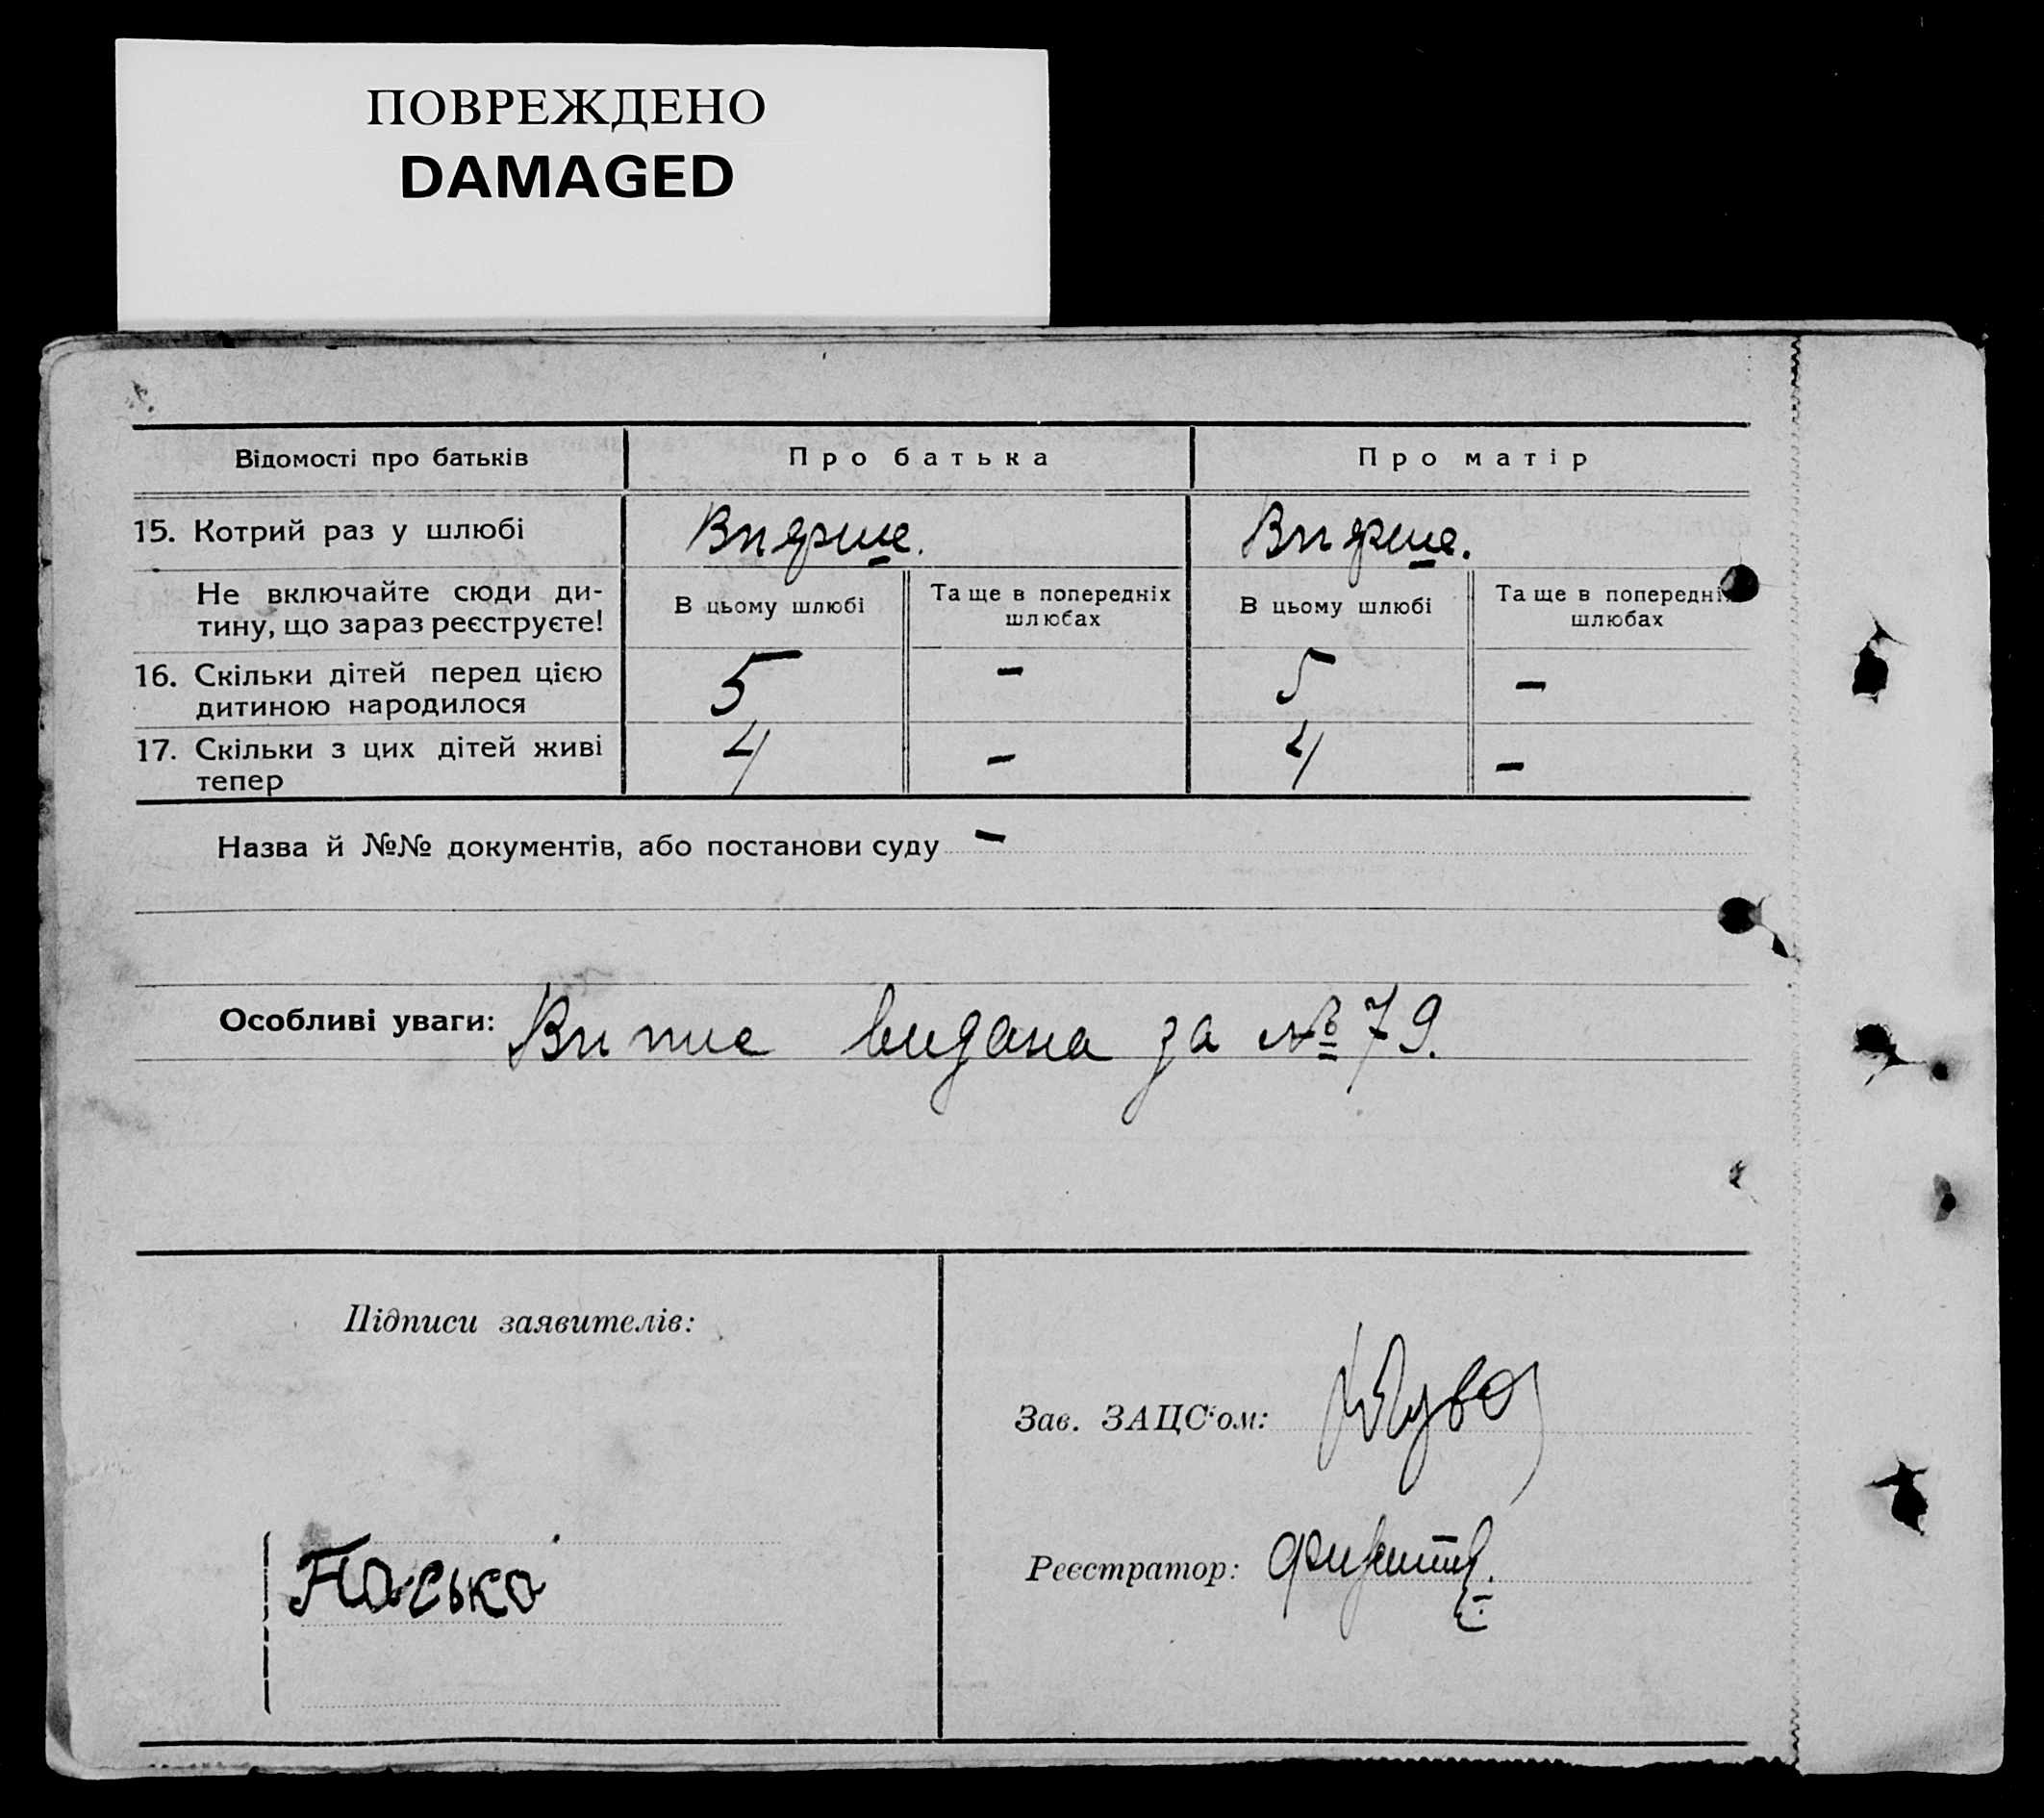 ПОВРЕЖДЕНО
DAMAGED
Відомості про батьків
Про батька
Про матір
15. Котрий раз у шлюбі
Вперше.
Вперше.
Не включайте сюди ди-
тину, що зараз реєструєте!
В цьому шлюбі
Та ще в попередніх
шлюбах
В цьому шлюбі
Та ще в попередніх
шлюбах
16. Скільки дітей перед цією
дитиною народилося
5
–
5
–
17. Скільки з цих дітей живі
тепер
4
–
4
–
Назва й №№ документів, або постанови суду –
Особливі уваги: Випис видана за № 79.
Підписи заявителів:
Зав. ЗАЦС'ом:
Реєстратор:
Пасько